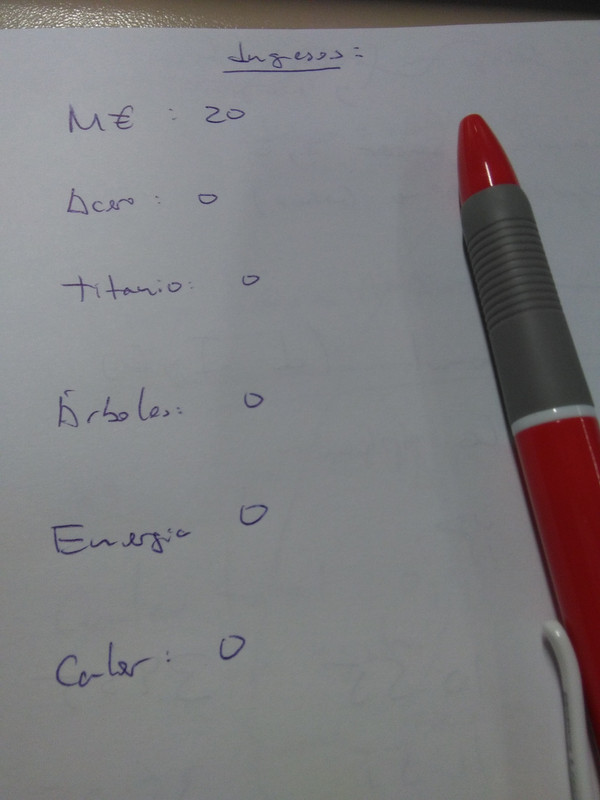 Ingresos:
M€ : 20
Acero: 0
Titanio: 0
Árboles: 0
Energia 0
Calor: 0